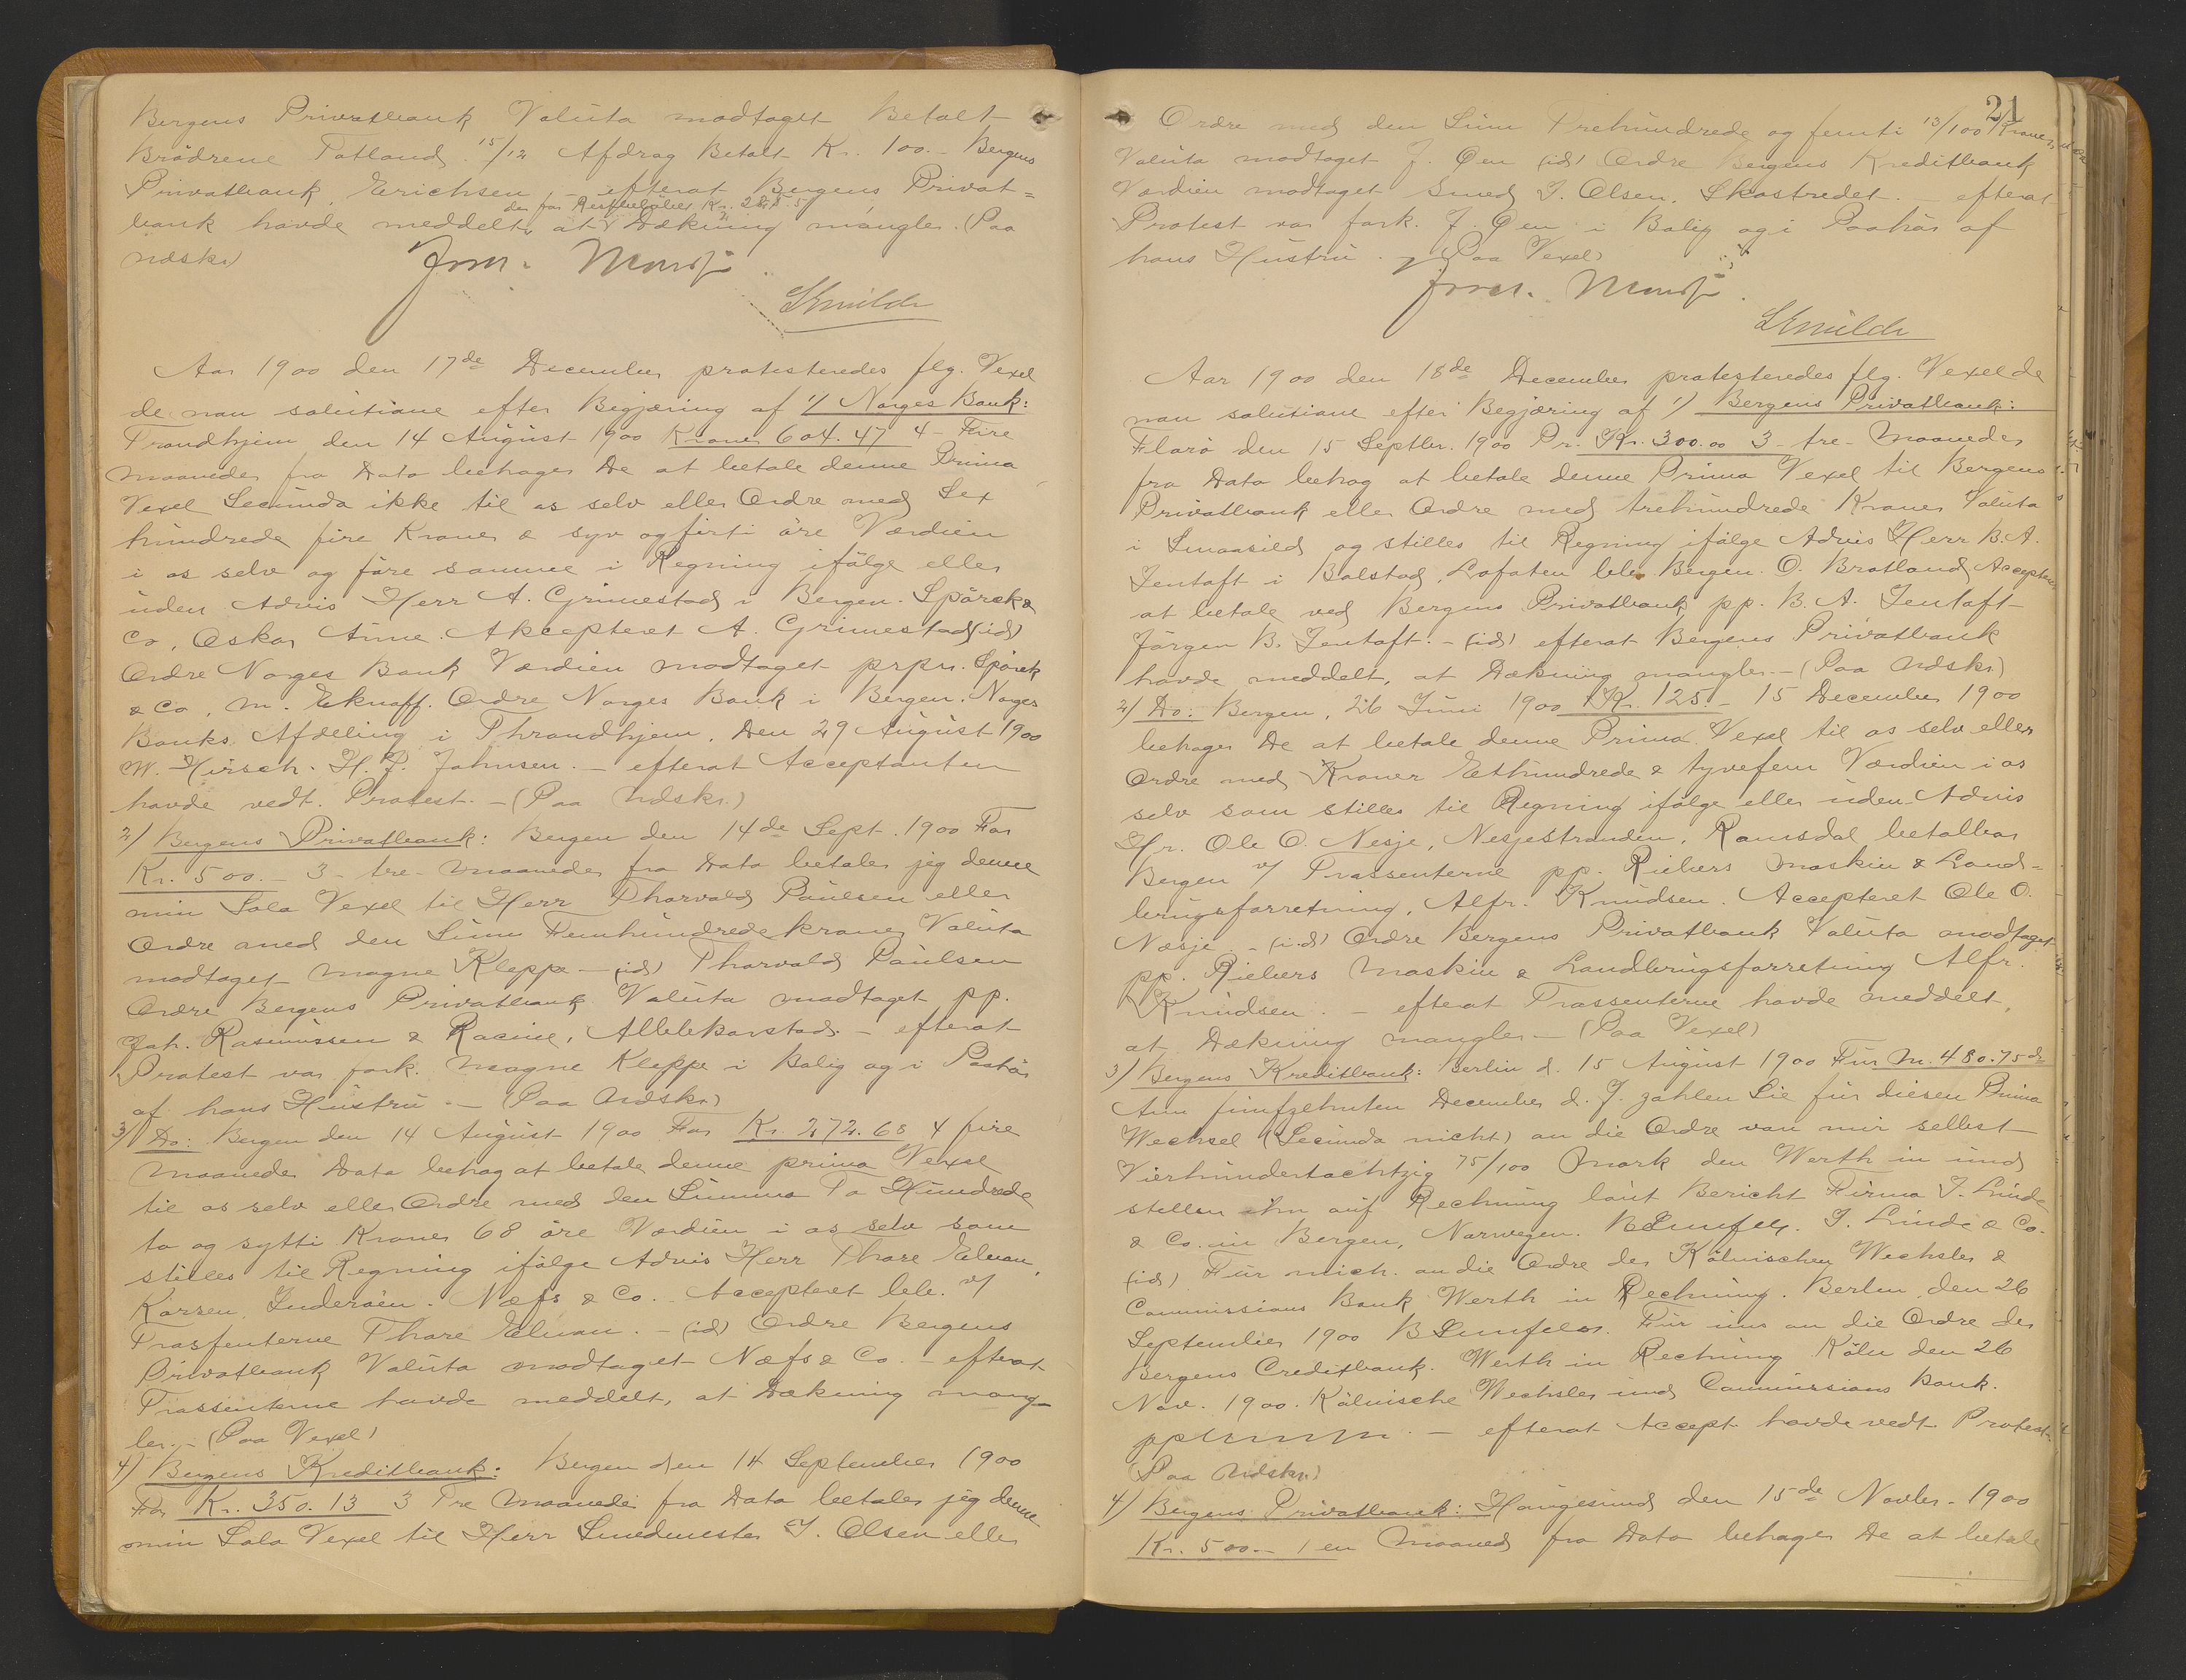 Bergens Privatbank Valuta modtaget Betalt
Brödrene Tatland. 15/12 Afdrag Betalt Kr. 100.- Bergens
Privatbank, Erichsen, - efterat Bergens Privat=
bank havde meddelt, at Dækning mangler. (Paa
Udskr)
Aar 1900 den 17de December protesteredes flg. Vexel
de non solutione efter Begjæring af 1/ Norges Bank:
Trondhjem den 14 August 1900 Kroner 604.47 4 - Fire
maaneder fra Dato behager De at betale denne Prima
Vexel Secunda ikke til os selv eller Ordre med Sex
hundrede fire Kroner & syv og firti øre Værdien
i os selv og føre samme i Regning ifölge eller
uden Advis Herr A. Grimestad i Bergen. Spörck &
Co, Oskar Aune. Akcepteret A. Grimestad (id)
Ordre Norges Bank Værdien modtaget prpr. Spörck
& Co, M. Eknoff. Ordre Norges Bank i Bergen. Norges
Banks Afdeling i Throndhjem, Den 29 August 1900
M. Hirsch. H. P. Johnsen. - efterat Acceptanten
havde vedt. Protest. - (Paa Udskr.)
2) Bergens Privatbank: Bergen den 14de Sept. 1900 For
Kr. 500.- 3 - tre - Maaneder fra Dato betaler jeg denne
min Sola Vexel til Herr Thorvald Paulsen eller
Ordre med den Sum Femhundrede kroner Valuta
modtaget Magne Kleppe - (id) Thorvald Paulsen
Ordre Bergens Privatbank Valuta modtaget pp.
Joh. Rasmussen & Racine, Allelekarstad. - efterat
Protest var fork. Magne Kleppe i Bolig og i Paahör
af hans Hustru. - (Paa Udskr)
3) Do: Bergen den 14 August 1900 For Kr. 272.68 4 fire
Maaneder Dato behag at betale denne prima Vexel
til os selv eller Ordre med den Summa To Hundrede
to og sytti Kroner 68 öre Værdien i os selv som
stilles til Regning ifölge Advis Herr Thore Elnan,
Korsen Inderöen. Næss & Co. Accepteret bet. v/
Trassenterne Thore Elnan. - (id) Ordre Bergens
Privatbank Valuta modtaget Næss & Co. - efterat
Trassenterne havde meddelt, at Dækning mang-
ler. - (Paa Vexel)
4) Bergens Kreditbank: Bergen den 14 September 1900
For Kr. 350.13 3 Tre Maaneder fra Dato betaler jeg denne
min Sola Vexel til Herr Smedmester J. Olsen eller
21
Ordre med den Sum Trehundrede og femti 13/100 Kroner
Valuta modtaget J. Øen (id) Ordre Bergens Kreditbank
Værdien modtaget Smed J. Olsen, Skostredet. - efterat
Protest var fork. J. Øen i Bolig og i Paahör af
hans Hustru. - (Paa Vexel)
Aar 1900 den 18de December protesteredes flg. Vexel de
non solutione efter Begjæring af 1) Bergens Privatbank:
Florö den 15 Septbr. 1900 Pr. Kr. 300.00 3 - tre - Maaneder
fra Dato behag at betale denne Prima Vexel til Bergens
Privatbank eller Ordre med trehundrede Kroner Valuta
i Smaasild og stilles til Regning ifölge Advis Herr B. A.
Jentoft i Balstad, Lofoten bet. Bergen. O. Bratland Accepteret
at betale ved Bergens Privatbank pp. B. A. Jentoft
Jörgen B. Jentoft. - (id) efterat Bergens Privatbank
havde meddelt, at Dækning mangler. - (Paa Udskr)
2) Do: Bergen, 26 Juni 1900 Kr. 125.- 15 December 1900
behager De at betale denne Prima Vexel til os selv eller
Ordre med Kroner Ethundrede & tyvefem Værdien i os
selv som stilles til Regning ifölge eller uden Advis
Hr. Ole O. Nesje, Nesjestranden, Romsdal betalbar
Bergen v/ Trassenterne pp. Riebers Maskin & Land=
brugsforretning, Alfr. Knudsen. Accepteret Ole O.
Næsje. - (id) Ordre Bergens Privatbank Valuta modtaget
pp. Riebers Maskin & Landbrugsforretning Alfr.
Knudsen. - efterat Trassenterne havde meddelt,
at Dækning mangler. - (Paa Vexel)
3) Bergens Kreditbank: Berlin d. 15 August 1900 Für M. 480.75 d
Am fünfzehnten December d. J. zahlen Sie für diesen Prima
Wechsel (Secunda nicht) an die Ordre von mir selbst
Vierhundertachtzig 75/100 Mark den Werth in und
stellen ihn auf Rechnung laut Bericht Firma J. Linde
& Co. in Bergen, Norwegen. J. Linde & Co.
(id) Für mich an die Ordre der Kölnischen Wechsler &
Commissions Bank Werth in Rechnung. Berlin, den 26
September 1900. Für uns an die Ordre der
Bergens Creditbank. Werth in Rechnung Köln den 26
Nov. 1900. Kölnische Wechsler und Commissions Bank.
pp - efterat Accept. havde vedt. Protest.
(Paa Udskr.)
4) Bergens Privatbank: Haugesund den 15de Novbr. 1900
Kr. 500.- 1 en Maaned fra Dato behager De at betale